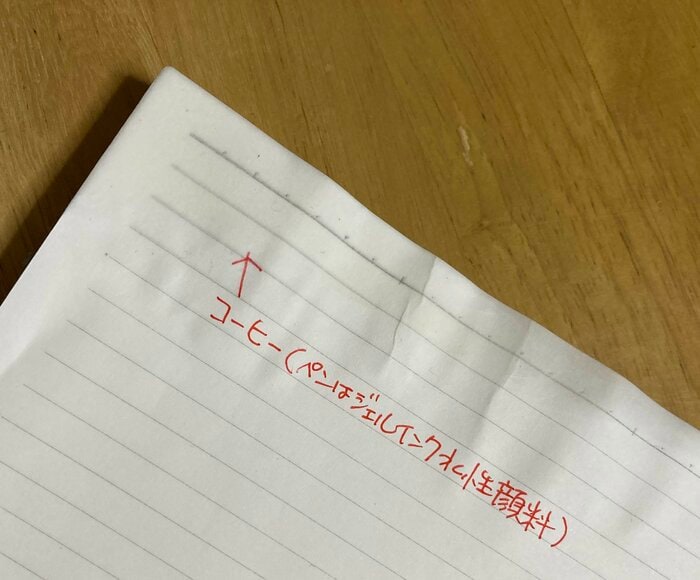 ↑
コーヒー(ペンはジェルインク水性顔料)